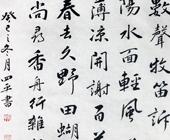 數聲牧笛訴
陽水面輕風
薄涼開謝
春去久野田蝴
尚尋香舟行難
癸巳冬月四平書